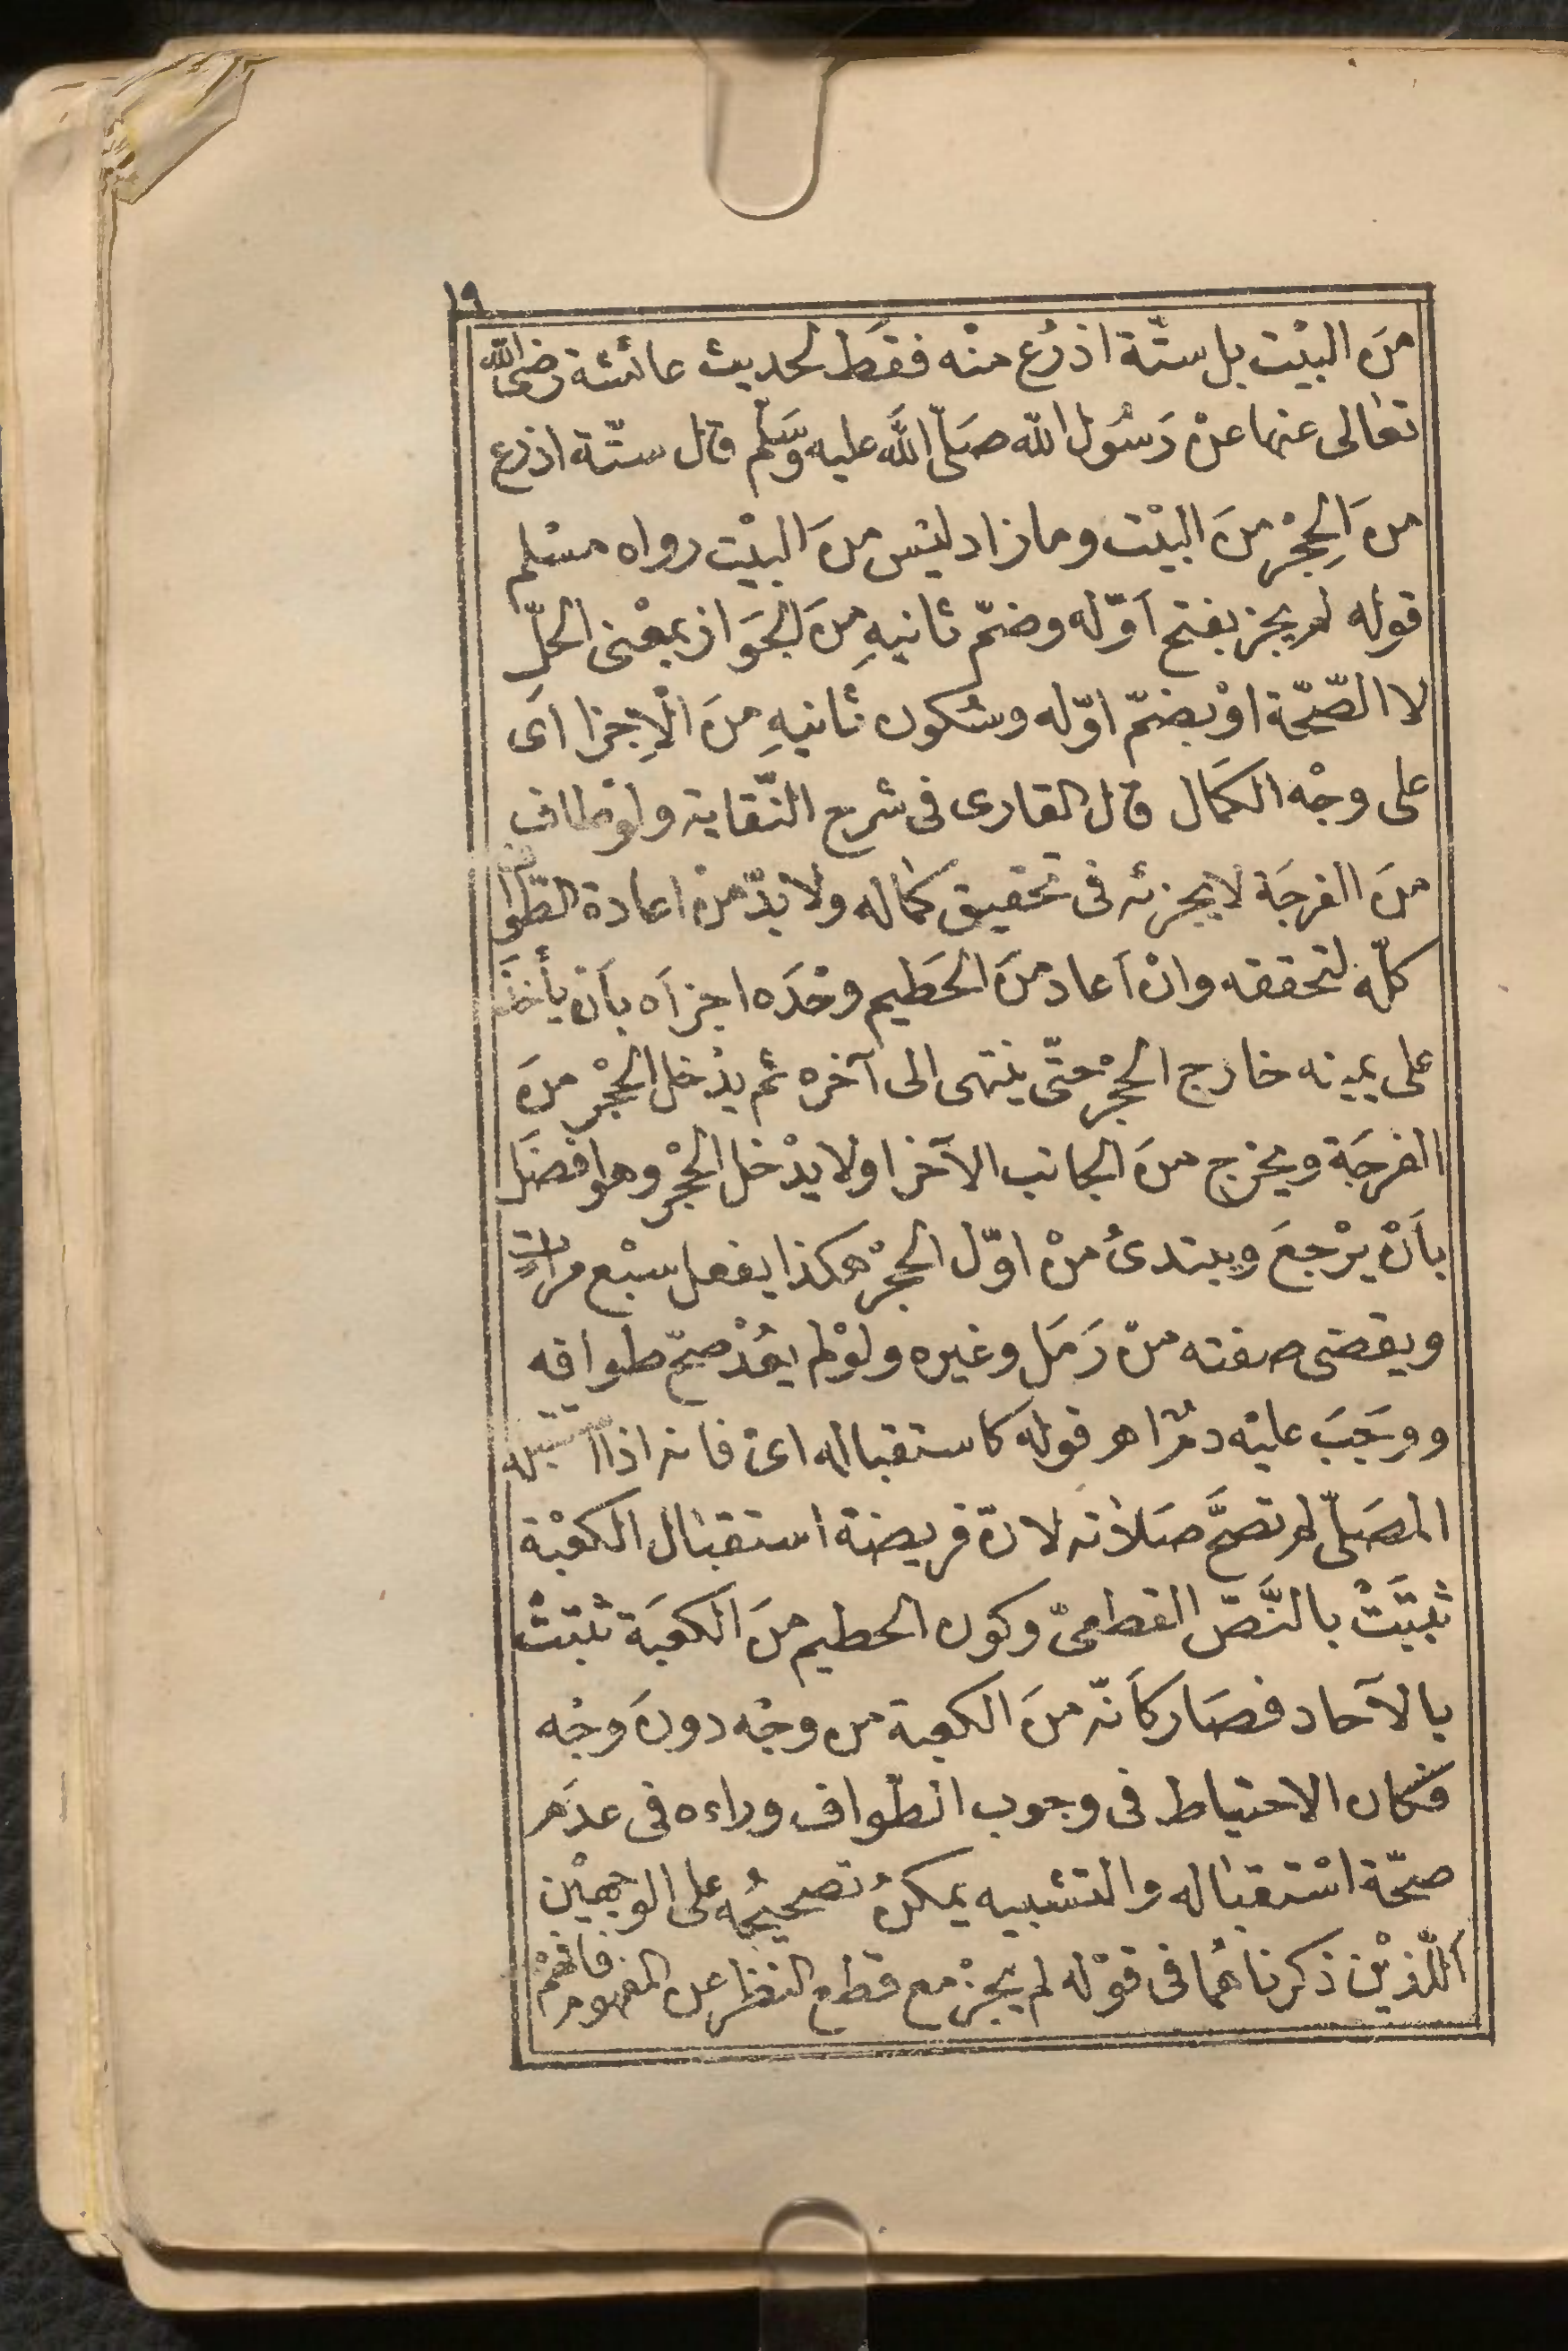 ١٩
منَ البيْت بل ستّة اذرُع منْه فقَط لحديث عائشة رضى الله
تعالى عنها عنْ رَسُول الله صَلّى اللّٰه عليه وَسَلّم قال ستّة اذرع
منَ الحِجْر منَ البيْت وما زاد ليْس منَ البيْت رواه مسْلم
قوله لم يجز بفتح اَوّله وضمّ ثانيهِ منَ الجَواز بمعْنى الحلّ
لا الصّحّة اوْ بضمّ اوّله وسُكون ثانيهِ منَ الْاِجزا اَى
على وجْه الكمَال قال القارى فى شرح النّقاية ولوْ طاف
منَ الفرجَة لا يجزئه فى تحقيق كماله ولا بدّ منْ اعادة الطّواف
كلّه لتحققه وانْ اَعاد منَ الحَطيم وحْدَه اجزاَه باَن يأخذَ
على يمينه خارج الحجْر حتّى ينتهى الى آخره ثم يدْخل الحجْر منَ
الفرجَة ويخرج منَ الجانب الآخر اولا يدْخل الحجْر وهوا فضَل
باَنْ يرْجعَ ويبتدئُ منْ اوّل الحجْر هكذا يفعل سبْع مراتٍ
ويقضى صفته منْ رَمَل وغيره ولوْ لم يعُدْ صحّ طوافه
ووجَبَ عليْه دمٌ اهـ قوله كاستقباله اىْ فانه اذا استقبله
المصَلّى لم تصحَّ صَلاته لانّ فريضة استقبال الكعْبة
ثبتَتْ بالنَّصّ القطعىّ وكون الحطيم منَ الكعبَة ثبتتْ
بالآحاد فصَار كأنّه منَ الكعبة من وجْه دونَ وجْه
فكان الاحتياط فى وجوب الطّواف وراءه فى عدَم
صحّة استقباله والتشبيه يمكنُ تصحيحُه على الوَجهيْن
اللّذيْن ذكرناهُما فى قوْله لم يجزْ مع قطع النظر عن المفهوم فافهمْ